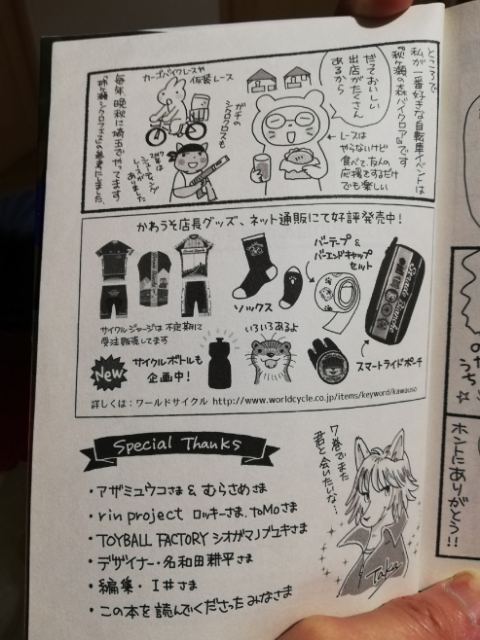 ところで
私が一番好きな自転車イベントは
『秋ヶ瀬の森バイクロア』です
だっておいしい
出店がたくさん
あるから
←レースは
やらないけど
食べて、友人の
応援をするだけ
でも楽しい
カーゴバイクレースや
仮装レース
ガチの
シクロクロスも
毎年、晩秋に埼玉でやってます
かわうそ店長グッズ、ネット通販にて好評発売中!
サイクルジャージは不定期に
受注販売してます
ソックス
バーテープ&
バーエンドキャップ
セット
スマートライドポーチ
New
サイクルボトルも
企画中!
いろいろあるよ
詳しくは:ワールドサイクル http://www.worldcycle.co.jp/items/keyword/kawauso
Special Thanks
・アザミユウコさま & むらさめさま
・rin project ロッキーさま、ToMoさま
・TOYBALL FACTORY シオガマノブユキさま
・デザイナー・名和田耕平さま
・編集・I井さま
・この本を読んでくださったみなさま
7巻でまた
君と会いたいな…
Taka
うち☆
ホントにありがとう!!